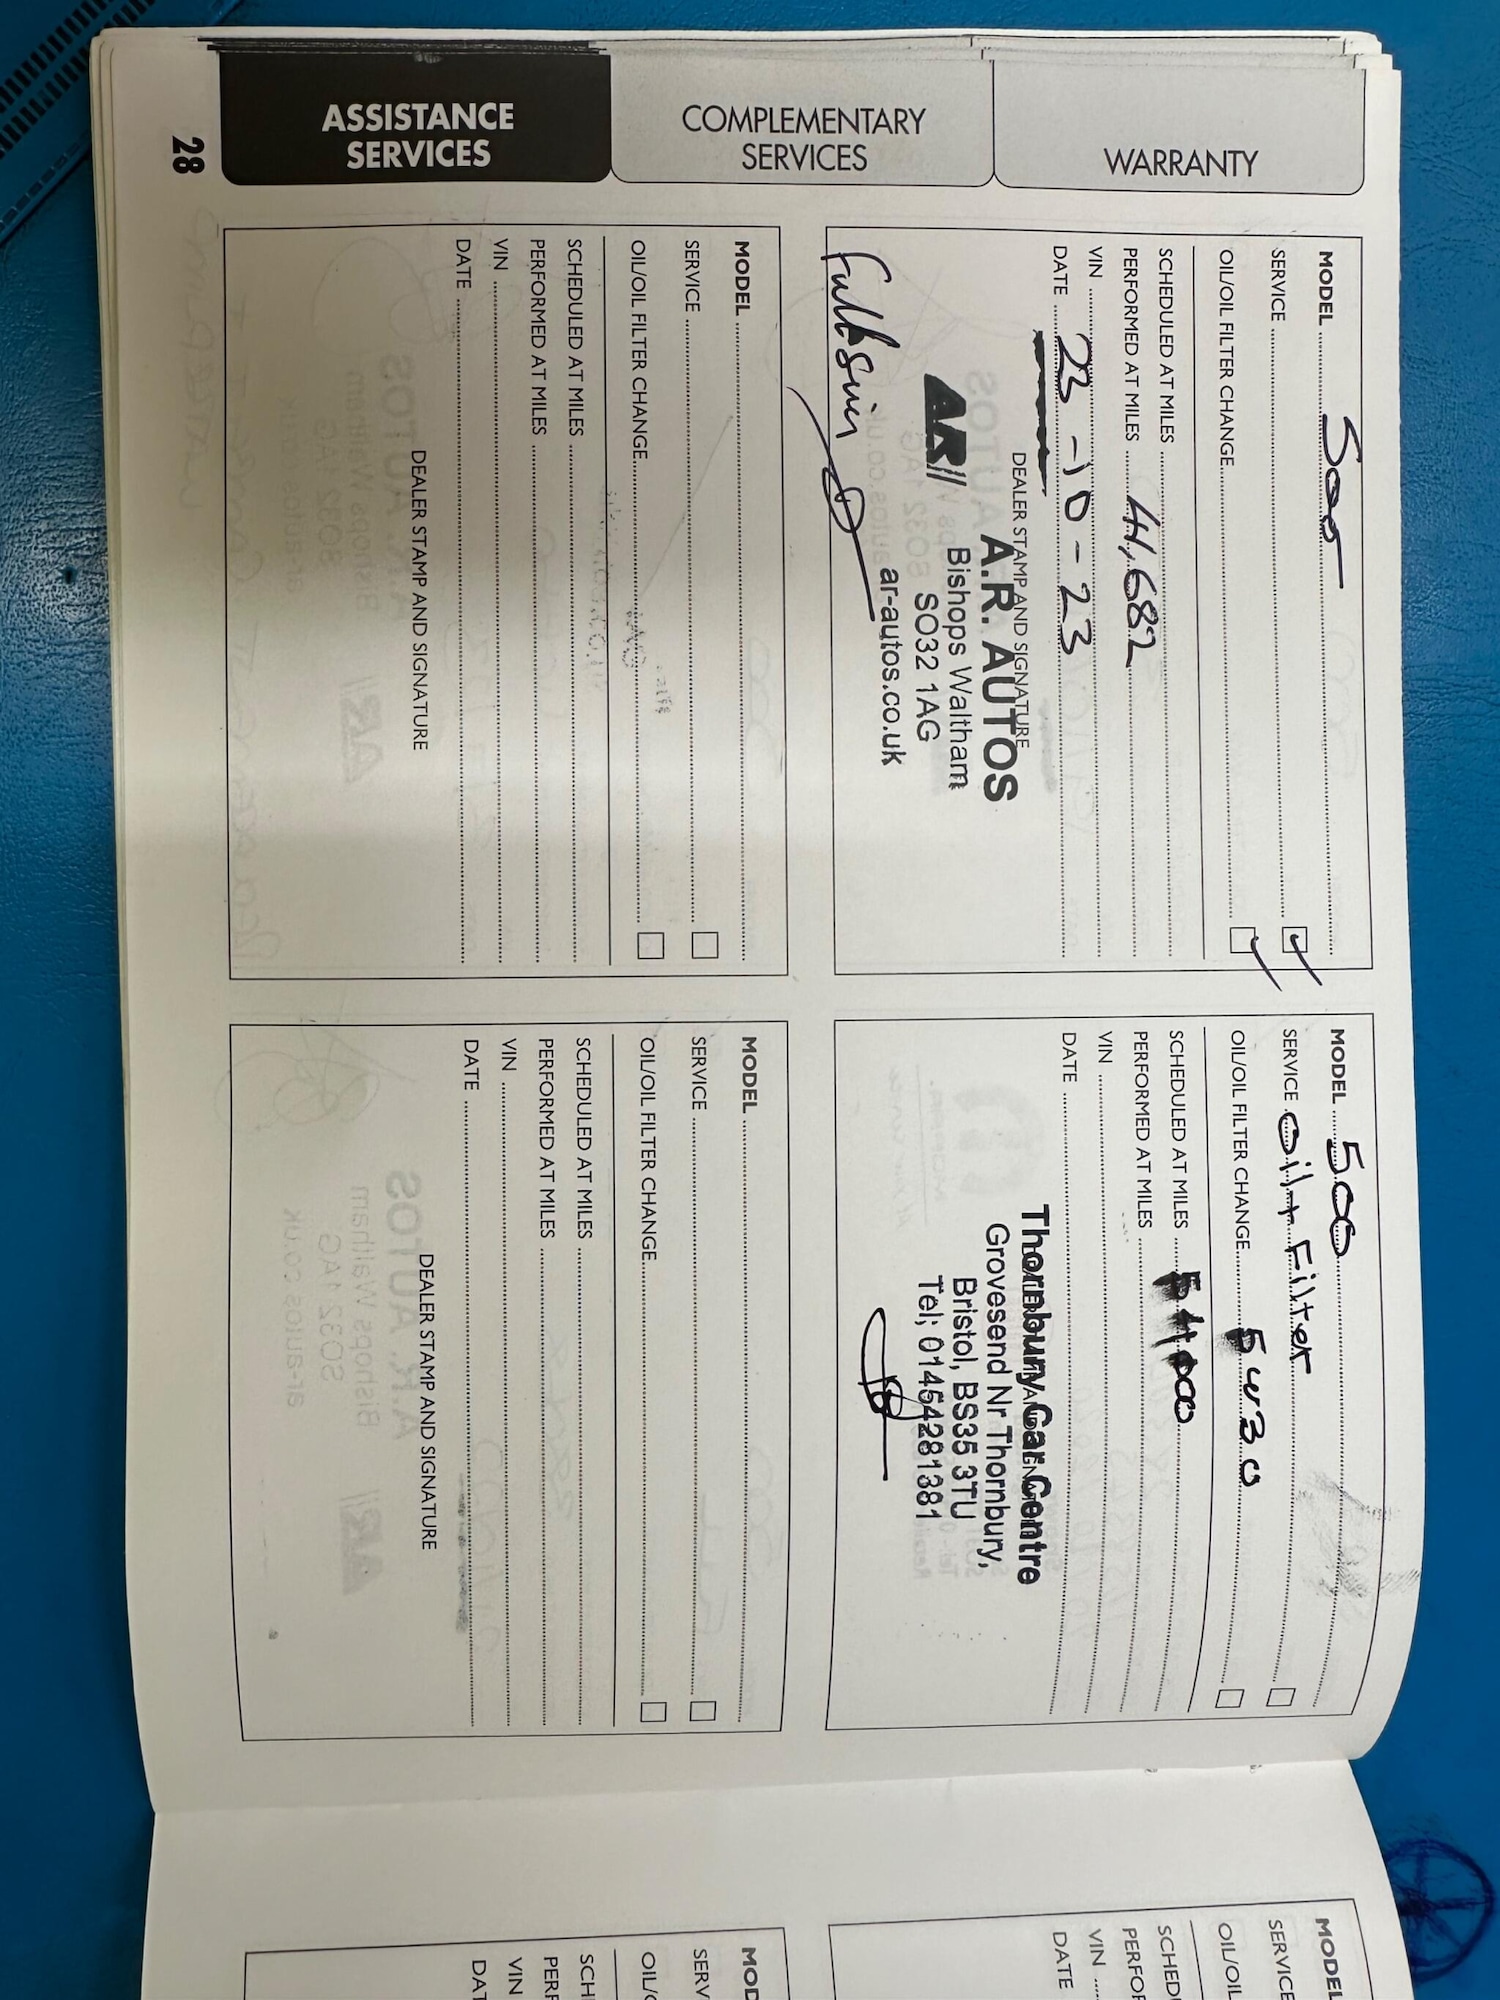 28
ASSISTANCE
SERVICES
COMPLEMENTARY
SERVICES
WARRANTY
MODEL 500
SERVICE
OIL/OIL FILTER CHANGE
SCHEDULED AT MILES
PERFORMED AT MILES 44,682
VIN
DATE 23-10-23
DEALER STAMP AND SIGNATURE
A.R. AUTOS
Bishops Waltham
SO32 1AG
ar-autos.co.uk
AR
MODEL 500
SERVICE oil + Filter
OIL/OIL FILTER CHANGE 5w30
SCHEDULED AT MILES 54000
PERFORMED AT MILES
VIN
DATE
Thornbury Car Centre
Grovesend Nr Thornbury,
Bristol, BS35 3TU
Tel; 01454281381
MODEL
SERVICE
OIL/OIL FILTER CHANGE
SCHEDULED AT MILES
PERFORMED AT MILES
VIN
DATE
DEALER STAMP AND SIGNATURE
MODEL
SERVICE
OIL/OIL FILTER CHANGE
SCHEDULED AT MILES
PERFORMED AT MILES
VIN
DATE
DEALER STAMP AND SIGNATURE
MODEL
SERVICE
OIL/OIL
SCHED
PERFO
VIN
DATE
MOD
SERV
OIL/O
SCH
PERF
VIN
DAT